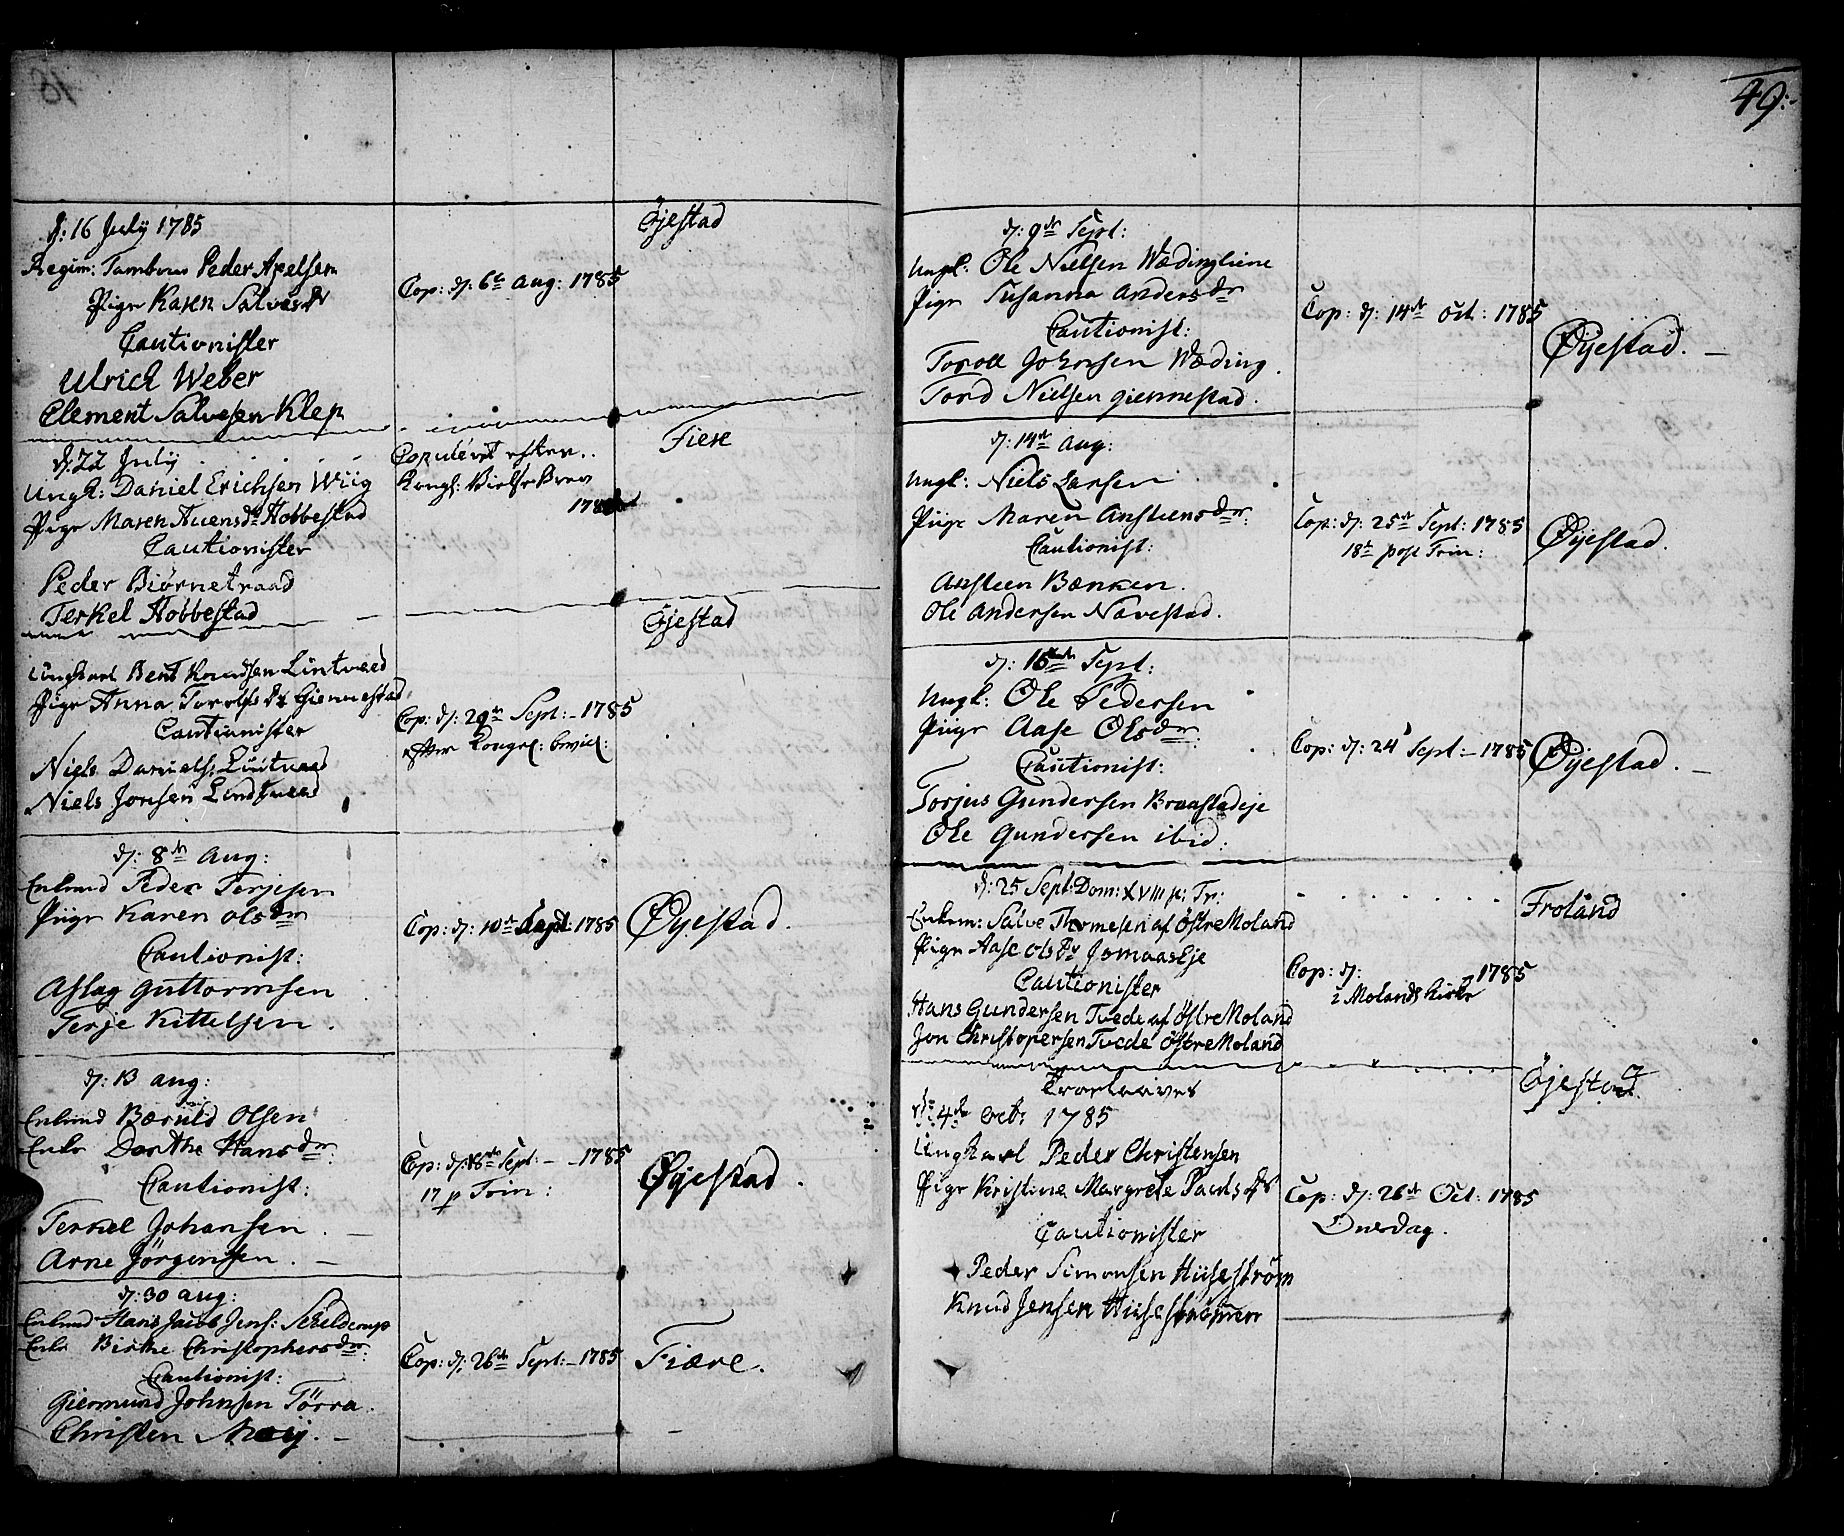 d: 16 July 1785
Regim: Tambour Peder Axelsen
Pige Karen Salves dr
Cautionister
Ulrich Weber
Clement Salvesen Klep
Cop: d: 6te Aug: 1785
Øjestad
d: 22 July
Ungk: Daniel Erichsen Wiig
Pige Maren Auensdr Hobbestad
Cautionister
Peder Biørnetraad
Terkel Hobbestad
Copuleret efter
Kongl: Vielse Brev
Fiere
Ungkarl Bent Knudsen Lintveed
Pige Anna Torolfs dr Giennestad
Cautionister
Niels Daniels: Lintveed
Niels Jonsen Lindtveed
Cop: d: 29de Sept: - 1785
efter Kongel: bevil:
Øjestad
d: 8de Aug:
Enkmd Peder Terjesen
Piige Karen Olsdr
Cautionist:
Aslag Guttormsen
Terje Kittelsen.
Cop: d: 10de Sept: 1785
Øyestad.
d: 13 Aug:
Enkmd Bæruld Olsen
Enke Dorthe Hansdr
Cautionist:
Terkel Johansen. -
Arne Jörgensen. -
Cop: d: 18de Sept: - - 1785
17 p Trin:
Øyestad.
d: 30 Aug:
Enkmd Hans Jacob Jens: Scheldrup
Enke Birthe Christophersdr:
Cautionist:
Giermund Johnsen Törra.
Christen Moy. -
Cop: d: 26de Sept: - 1785
Fiære.
49:
d: 9de Sept:
Ungk: Ole Nielsen Wædingliene
Pige Susanna Andersdr
Cautionist:
Toroll Johnsen Wæding.
Tord Nielsen Giennestad.
Cop: d: 14de Oct: 1785
Øyestad. -
d: 14de Aug:
Ungk: Niels Larsen
Piige Maren Anstensdr:
Cautionist:
Ansteen Bænken.
Ole Andersen Navestad.
Cop: d: 25de Sept: 1785
18de post Trin:
Øyestad.
d: 15de Sept:
Ungk: Ole Pedersen
Piige Aase Olsdr
Cautionist:
Torjus Gundersen Braastadeje
Ole Gundersen ibid:
Cop: d: 24 Sept: - 1785
Øyestad. -
d: 25 Sept: Dom: XVIII p: Tr:
Enkem: Salve Thomesen af Östre Moland
Pige Aase Ols dr Jomaas Eje
Cautionister
Hans Gundersen Tvede af Östre Moland
Jon Christopersen Tvede Östre Moland
Cop: d: 1785
i Molands Kirke
Froland
Trolovet
d: 4de Octb 1785
Ungkarl Peder Christensen
Pige Kristine Margrete Pauls dr
Cautionister
Peder Simonsen Hüseström
Knud Jensen Hüseströmen
Cop: d: 26de Oct: 1785
Onsdag.
Øjestad